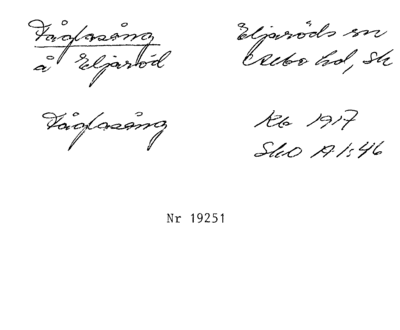 Fåglasång
å Eljaröd
Eljaröds sn
Albo hd, Sk
Fåglasång
Rb 1917
SkO A1:46
Nr 19251